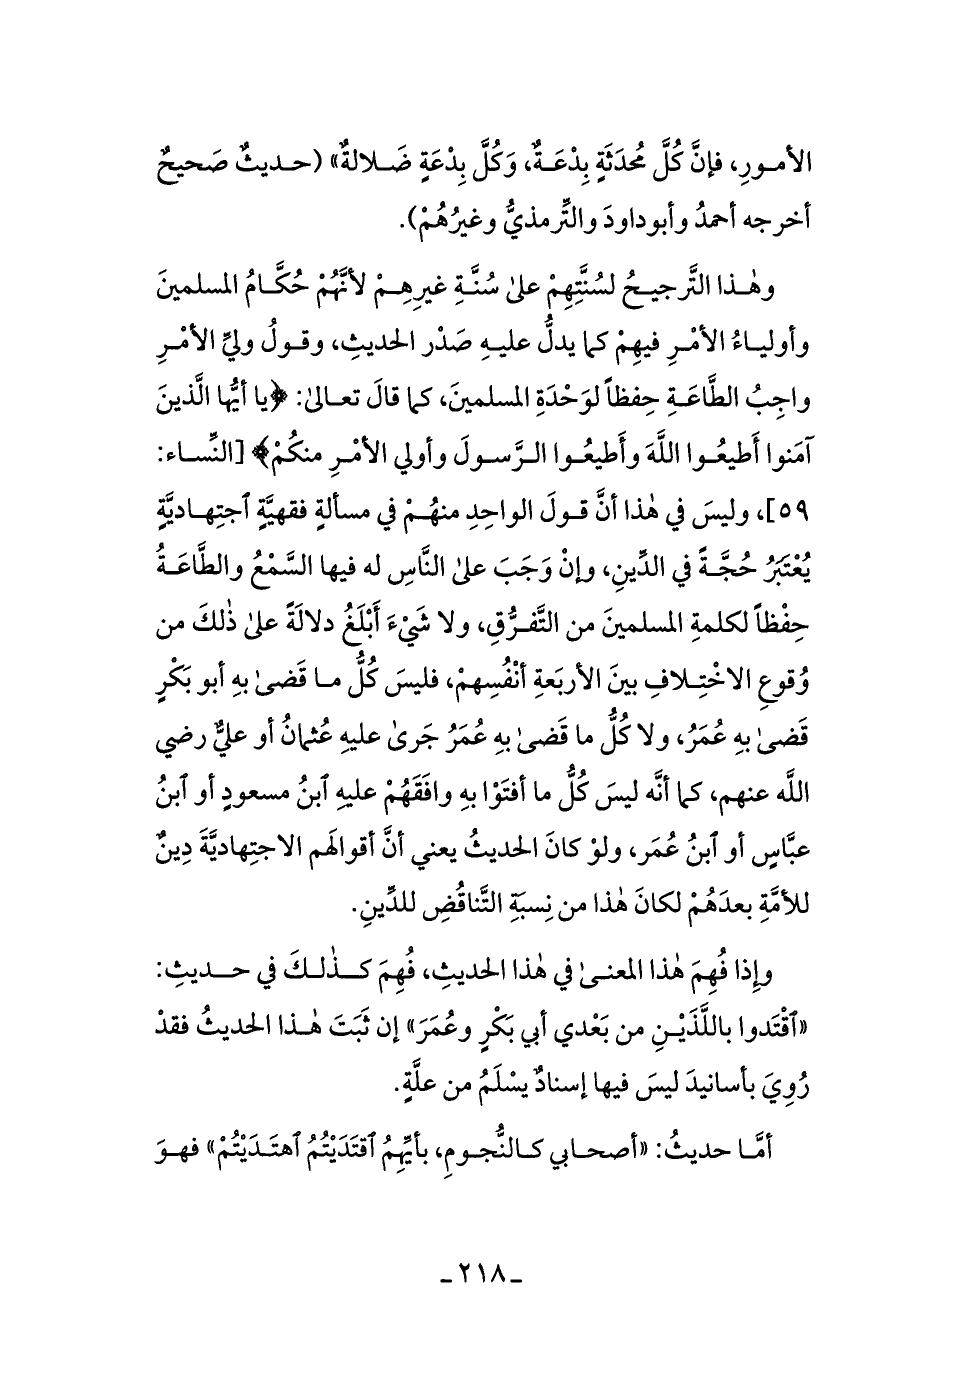 الأمـورِ، فإنَّ كُلَّ مُحدَثَةٍ بِدْعَـةٌ، وَكُلَّ بِدْعَةٍ ضَـلالةٌ» (حـديثٌ صَحيحٌ
أخرجه أحمدُ وأبوداودَ والتِّرمذيُّ وغيرُهُمْ).
وهٰـذا التَّرجيـحُ لسُنَّتِهِمْ علىٰ سُنَّـةِ غيرِهِـمْ لأنَّهُمْ حُكَّـامُ المسلمينَ
وأوليـاءُ الأمْـرِ فيهِمْ كما يدلُّ عليـهِ صَدْر الحديثِ، وقـولُ وليِّ الأمْـرِ
واجِبُ الطَّاعَـةِ حِفظاً لوَحْدَةِ المسلمينَ، كما قالَ تعـالىٰ: ﴿يا أيُّها الَّذينَ
آمَنوا أَطيعُـوا اللَّهَ وأَطيعُـوا الـرَّسـولَ وأولي الأمْـرِ منكُمْ﴾ [النِّسـاء:
٥٩]، وليسَ في هٰذا أنَّ قـولَ الواحِدِ منهُـمْ في مسألةٍ فقهيَّةٍ ٱجتِهـاديَّةٍ
يُعْتَبَرُ حُجَّـةً في الدِّينِ، وإنْ وَجَبَ علىٰ النَّاسِ له فيها السَّمْعُ والطَّاعَـةُ
حِفْظاً لكلمةِ المسلمينَ من التَّفـرُّقِ، ولا شَيْءَ أَبْلَغُ دلالَةً علىٰ ذٰلكَ من
وُقوعِ الاخْتِـلافِ بينَ الأربَعةِ أنْفُسِهمْ، فليسَ كُلُّ مـا قَضىٰ بهِ أبو بَكْرٍ
قَضىٰ بهِ عُمَرُ، ولا كُلُّ ما قَضىٰ بهِ عُمَرُ جَرىٰ عليهِ عُثمانُ أو عليٌّ رضي
اللَّه عنهم، كما أنَّه ليسَ كُلُّ ما أفتَوْا بهِ وافَقَهُمْ عليهِ ٱبنُ مسعودٍ أو ٱبنُ
عبَّاسٍ أو ٱبنُ عُمَر، ولوْ كانَ الحديثُ يعني أنَّ أقوالَهم الاجتِهاديَّةَ دِينٌ
للأمَّةِ بعدَهُمْ لكانَ هٰذا من نِسبَةِ التَّناقُضِ للدِّينِ.
وإِذا فُهِمَ هٰذا المعنـىٰ في هٰذا الحديثِ، فُهِمَ كـذٰلـكَ في حـديثِ:
«ٱقْتَدوا باللَّذَيْـنِ من بَعْدي أبي بَكْرٍ وعُمَرَ» إن ثَبَتَ هٰـذا الحديثُ فقدْ
رُوِيَ بأسانيدَ ليسَ فيها إسنادٌ يسْلَمُ من علَّةٍ.
أمَّـا حديثُ: «أصحـابي كـالنُّجـومِ، بأيِّهِمُ ٱقتَدَيْتُمُ ٱهتَـدَيْتُمْ» فهـوَ
ـ ٢١٨ ـ